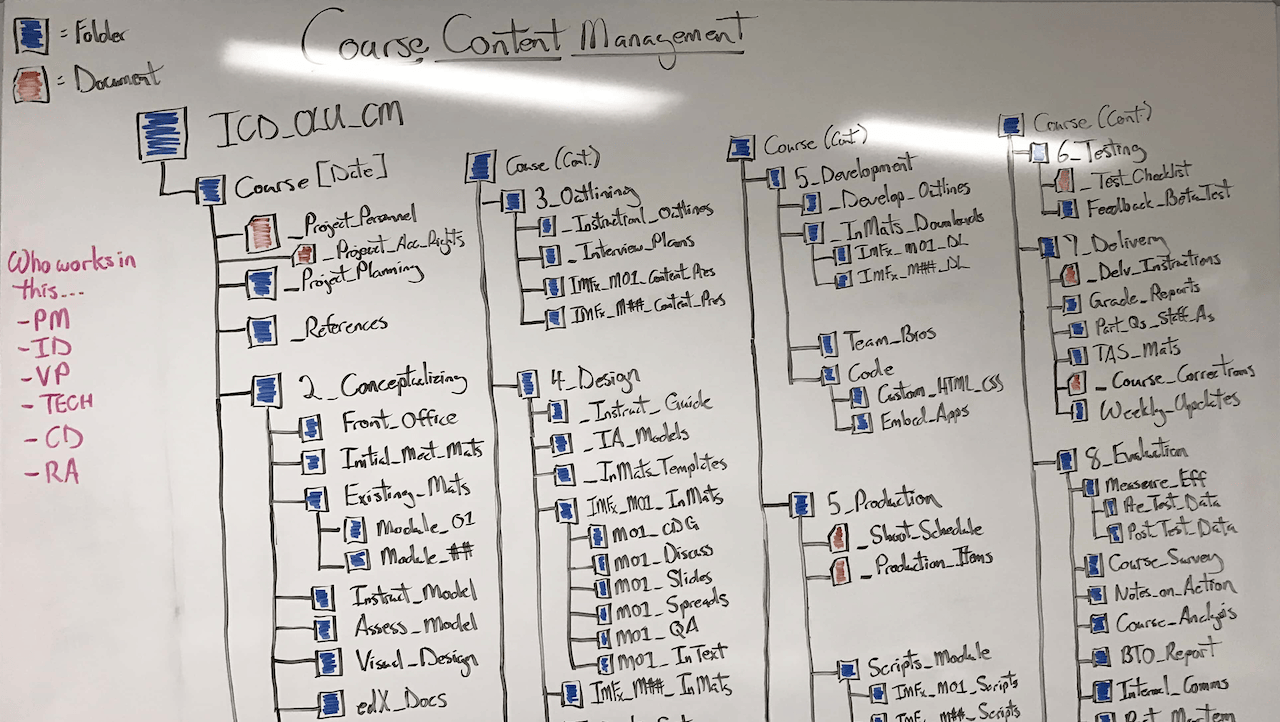 = Folder
= Document
Course Content Management
Who works in
this...
- PM
- ID
- VP
- TECH
- CD
- RA
ICD_OLU_CM
Course [Date]
_Project_Personnel
_Project_Acc_Rights
_Project_Planning
_References
2_Conceptualizing
Front_Office
Initial_Meet_Mats
Existing_Mats
Module_01
Module_##
Instruct_Model
Assess_Model
Visual_Design
edX_Docs
Course (Cont.)
3_Outlining
_Instructional_Outlines
_Interview_Plans
IMFx_M01_Content_Pres
IMFx_M##_Content_Pros
4_Design
_Instruct_Guide
_IA_Models
_InMats_Templates
IMFx_M01_InMats
M01_CDG
M01_Discuss
M01_Slides
M01_Spreads
M01_QA
M01_InText
IMFx_M##_InMats
Course (Cont)
5_Development
_Develop_Outlines
_InMats_Downloads
IMFx_M01_DL
IMFx_M##_DL
Team_Bios
Code
Custom_HTML_CSS
Embed_Apps
5_Production
_Shoot_Schedule
_Production_Items
Scripts_Module
IMFx_M01_Scripts
IMFx_M##_Scripts
Course (Cont.)
6_Testing
_Test_Checklist
Feedback_Beta_Test
7_Delivery
_Delv_Instructions
Grade_Reports
Part_Qs_Staff_As
TAS_Mats
_Course_Corrections
Weekly_Updates
8_Evaluation
Measure_Eff
Pre_Test_Data
Post_Test_Data
Course_Survey
Notes_on_Action
Course_Analysis
BTO_Report
Internal_Comms
Post_Mortem